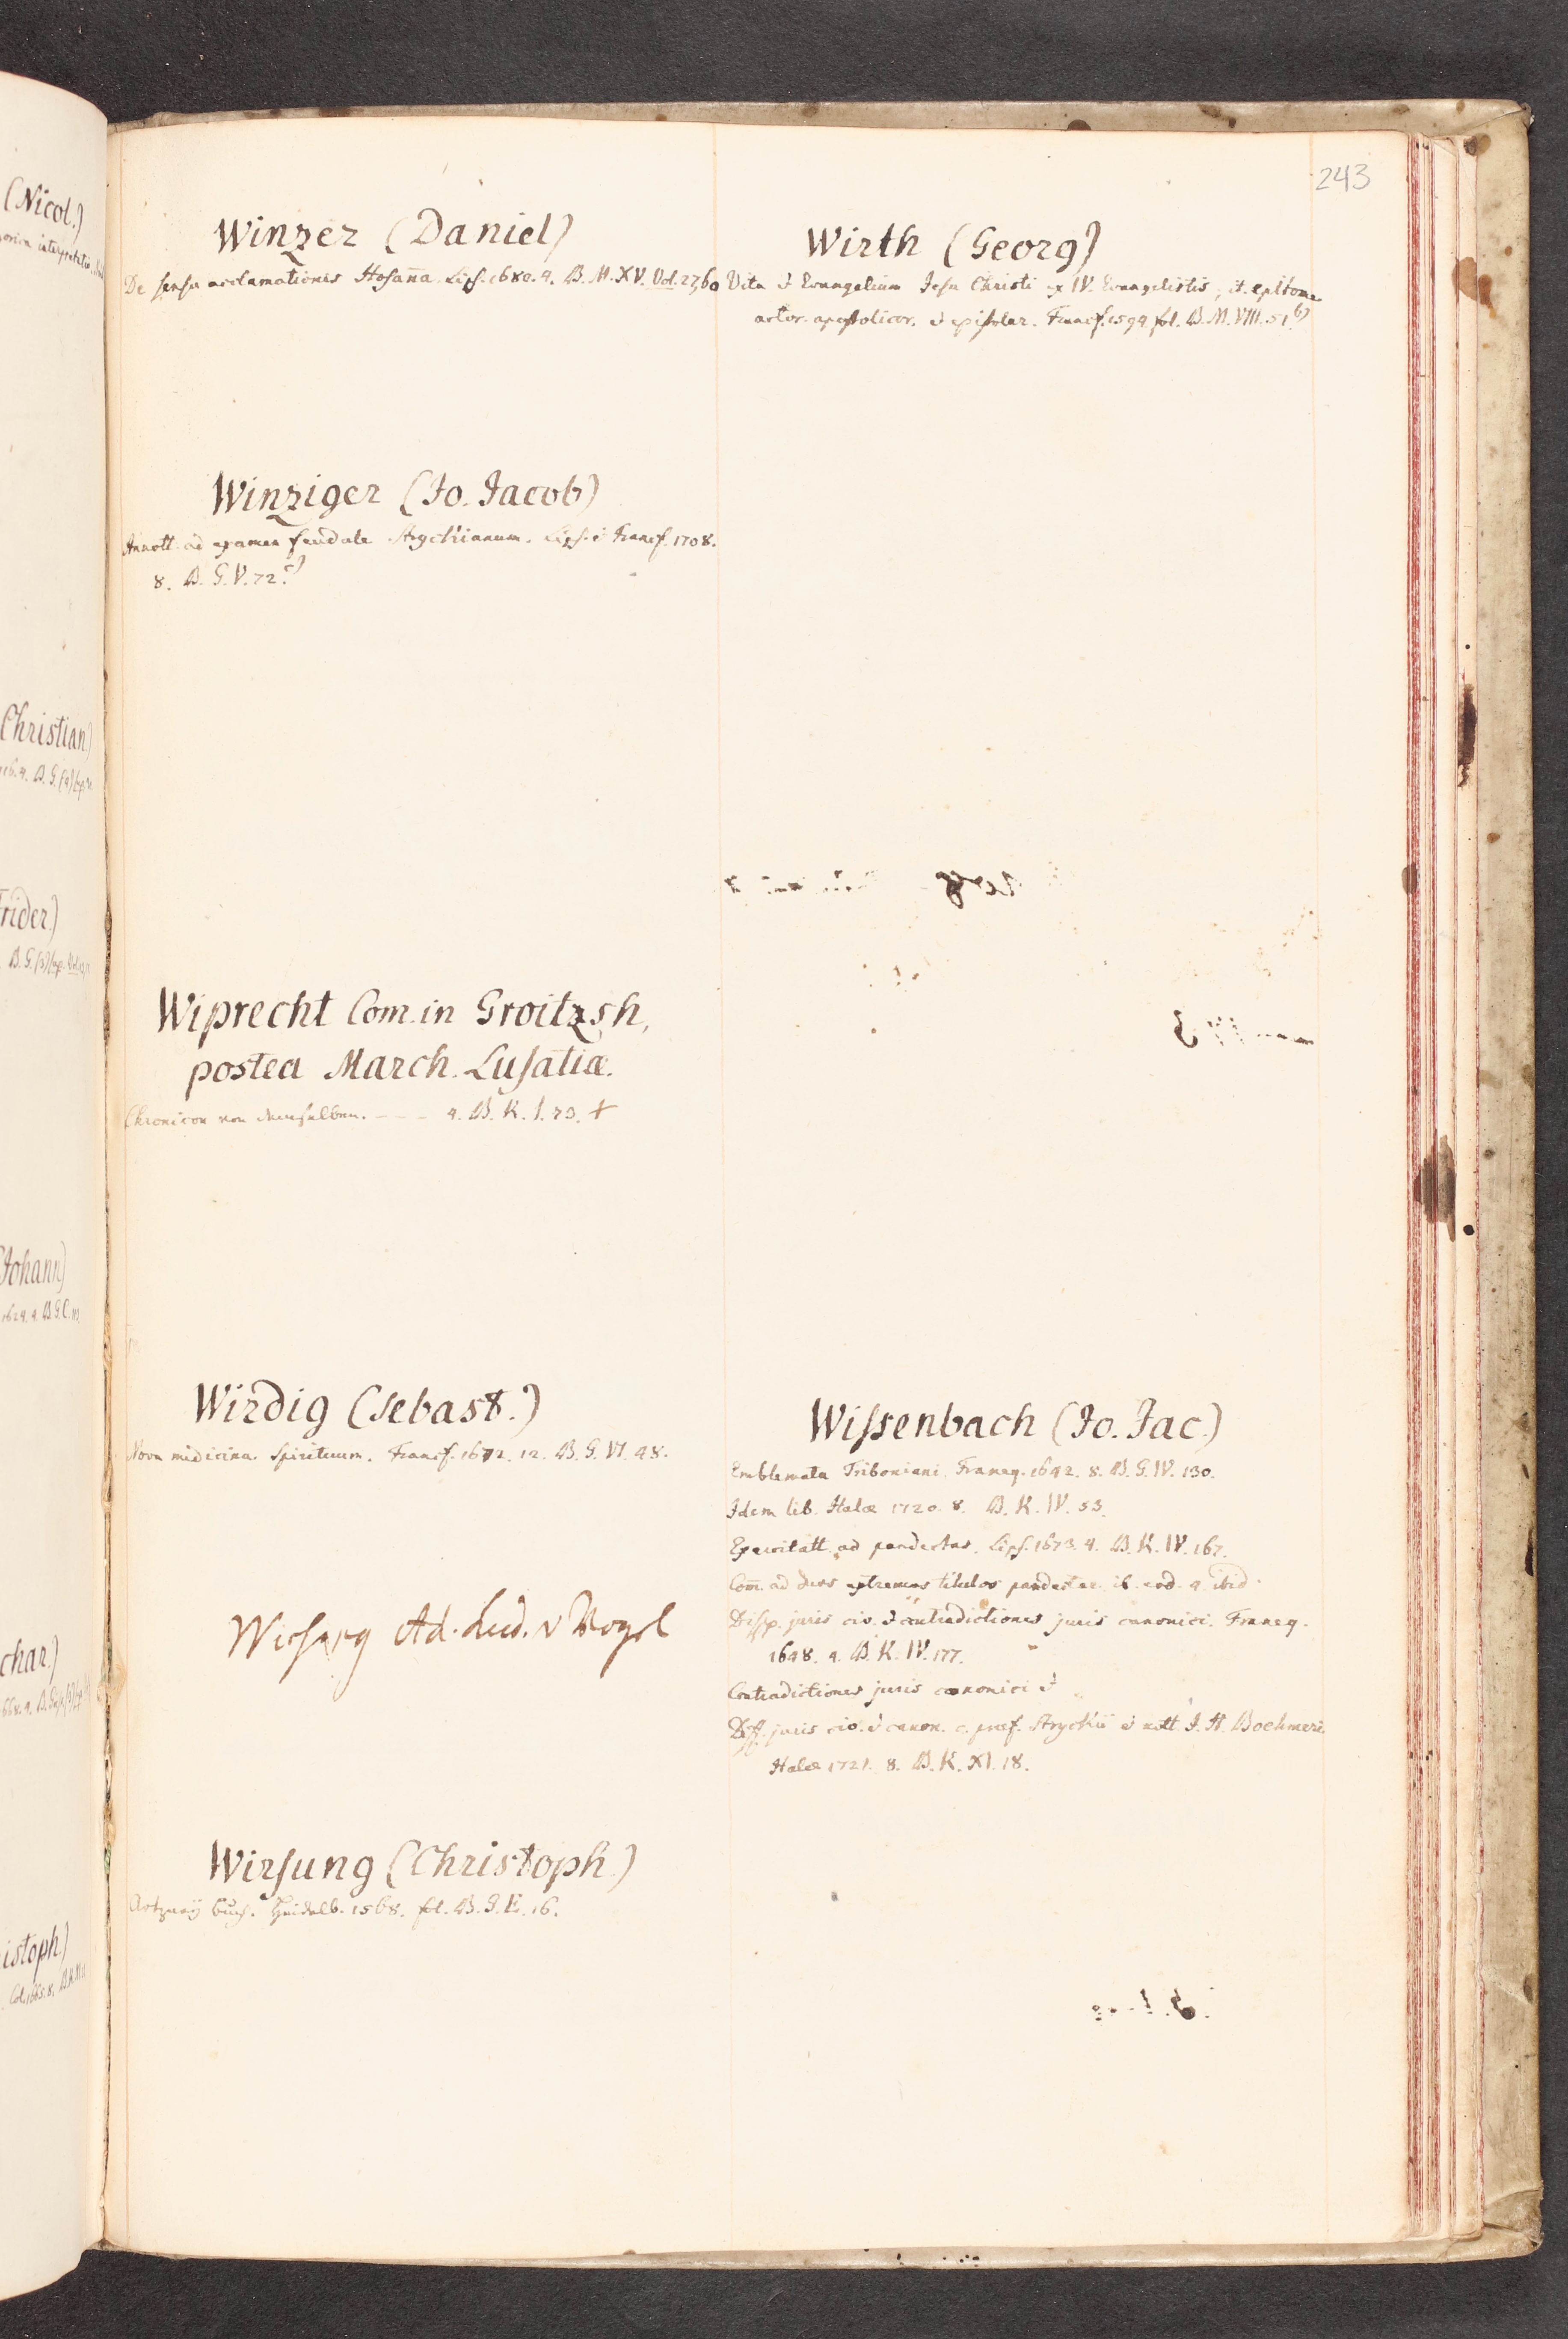 243
Winzer (Daniel)
De sensu acclamationis Hosaña. Lips. 1680. 4. B. M. XV. Vol. 27,60
Winziger (Jo. Jacob)
Annott. ad examen feudale Strychianum. Lips. è Francf. 1708.
8. B. G. V. 72. c)
Wiprecht Com. in Groitzsh,
postea March. Lusatiæ.
Chronicon von demselben. - - - 4. B. K. I. 73. +
Wirdig (Sebast.)
Nova medicina Spirituum. Francf. 1672. 12. B. G. VI. 48.
Ad. Lud. v
Wirsung (Christoph)
Artzney buch. Heidelb. 1568. fol. B. G. E. 16.
Wirth (Georg)
Vita è Evangelium Jesu Christi ex IV. Evangelistis, it. epitome
actor. apostolicor. è epistolar. Francf. 1594 fol. B. M. VIII. 51. b)
Wissenbach (Jo. Jac.)
Emblemata Triboniani. Franeq. 1642. 8. B. G. IV. 130.
Idem lib. Halæ 1720. 8. B. K. IV. 53.
Exercitatt. ad pandectas. Lips. 1673. 4. B. K. IV. 167.
Com̄. ad duos extremos titulos pandectar. ib. eod. 4. ibid.
Disp. juris civ. è contradictiones juris canonici. Franeq.
1648. 4. B. K. IV. 177.
Contradictiones juris canonici è
Diss. juris civ. è canon. c. præf. Strychii è nott. J. H. Boehmeri.
Halæ 1721. 8. B. K. XI. 18.